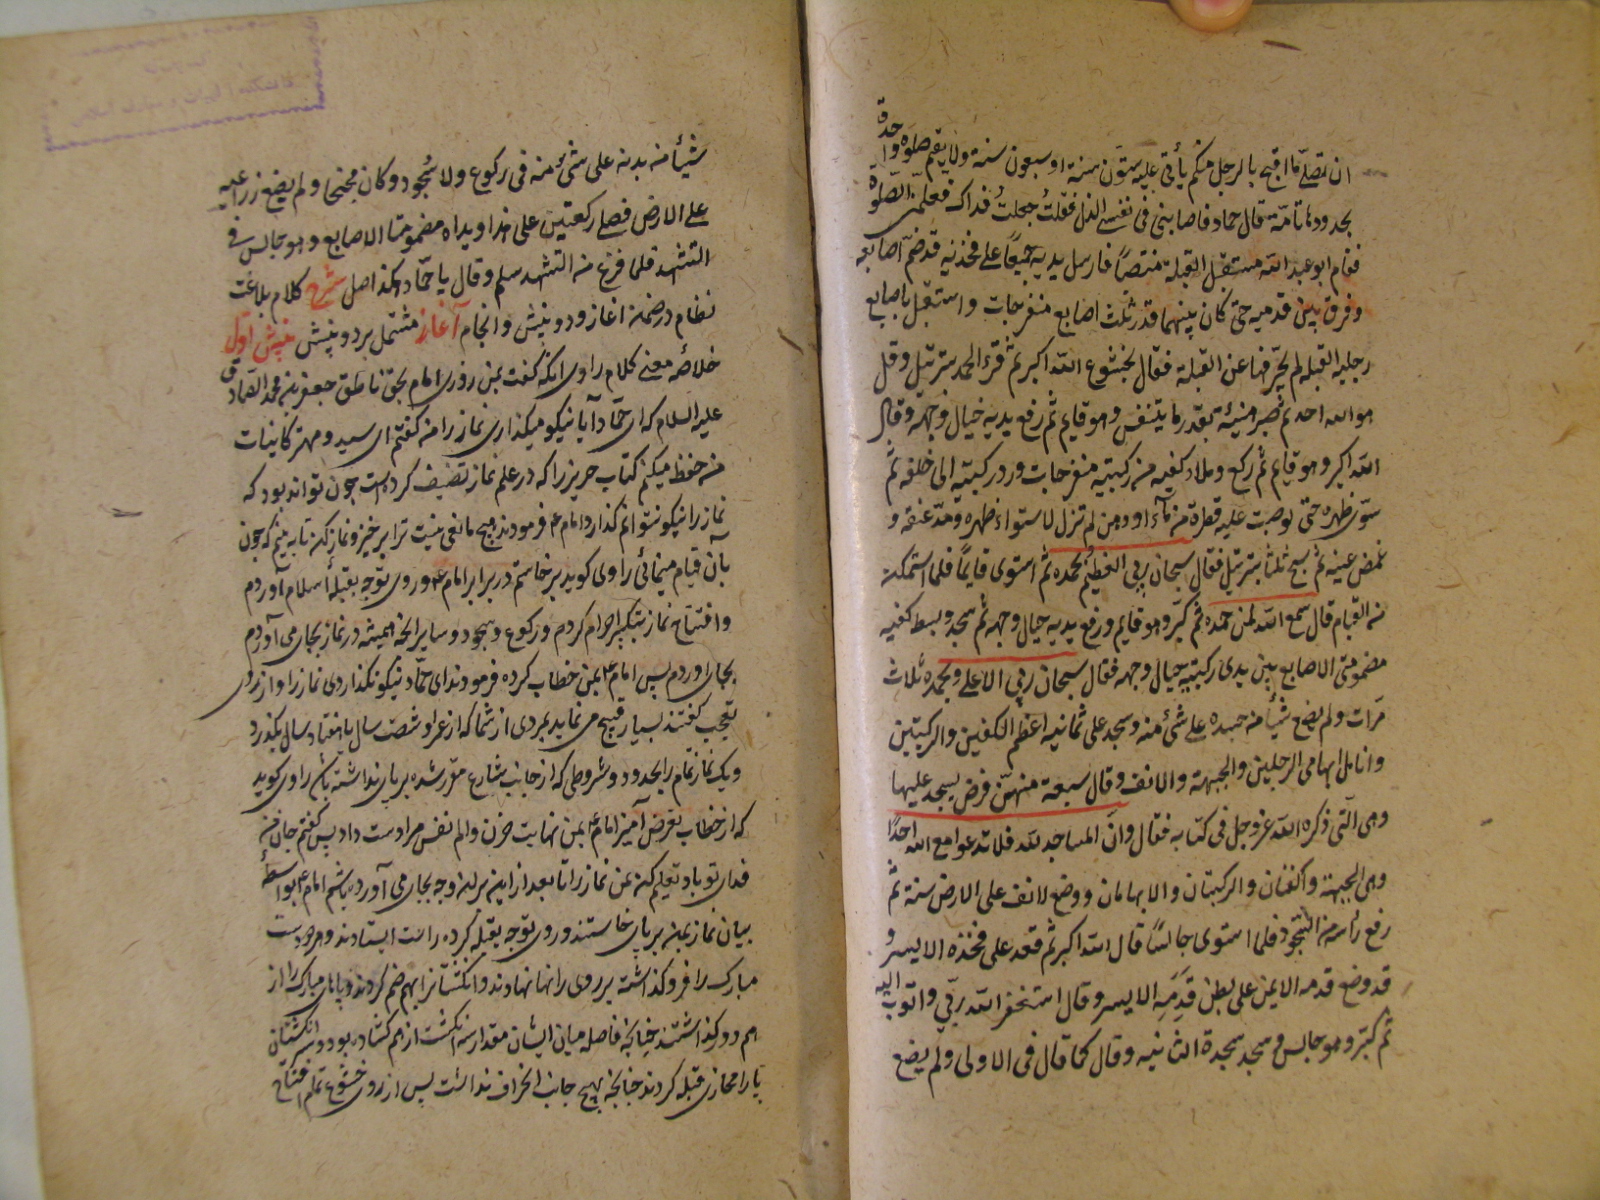 ان تصلی ما اقبح بالرجل منکم یأتی علیه ستون سنة او سبعون سنة ولا یقیم صلوة واحدة
بحدودها تامّة قال حماد فاصابنی فی نفسی الذل فقلتُ جعلتُ فداک فعلّمنی الصلوة
فقام ابو عبد اللّه مستقبل القبلة منتصباً فارسل یدیه جمیعاً علی فخذیه قد ضمّ اصابعه
و فرق بین قدمیه حتی کان بینهما قدر ثلث اصابع منفرجات و استقبل باصابع
رجلیه القبله لم یحرّفها عن القبلة فقال بخشوع اللّه اکبر ثم قرء الحمد بترتیل و قل
هو اللّه احد ثم صبر هنیئة بقدر ما یتنفس و هو قایم ثم رفع یدیه حیال وجهه و قال
اللّه اکبر و هو قایم ثم رکع و ملاء کفیه من رکبتیه منفرجات و رد رکبتیه الی خلفه ثم
سوّی ظهره حتی لو صب علیه قطرة من مآء او دهن لم تزل لاستواء ظهره و مدّ عنقه و
غمض عینیه ثم سبح ثلثا بترتیل فقال سبحان ربی العظیم و بحمده ثم استوی قایماً فلما استمکن
من القیام قال سمع اللّه لمن حمده ثم کبّر و هو قایم و رفع یدیه حیال وجهه ثم سجد و بسط کفیه
مضمومتی الاصابع بین یدی رکبتیه حیال وجهه فقال سبحان ربی الاعلی و بحمده ثلاث
مرّات و لم یضع شیأ من جسده علی شئ منه و سجد علی ثمانیه اعظم الکفین والرکبتین
و انامل ابهامی الرجلین والجبهة والانف و قال سبعة منهنّ فرض یسجد علیها
وهی الّتی ذکره اللّه عز و جل فی کتابه فقال و انّ المساجد للّه فلا تدعوا مع اللّه احداً
وهی الجبهة و الکفان والرکبتان والابهامان و وضع الانف علی الارض سنة ثم
رفع رأسه من السّجود فلما استوی جالسًا قال اللّه اکبر ثم قعد علی فخذه الایسر و
قد وضع قدمه الایمن علی بطن قَدَمِهِ الایسر و قال استغفر اللّه ربّی و اتوب الیه
ثم کبّر و هو جالس و سجد سجدة الثانیه و قال کما قال فی الاولی و لم یضع
شیأً من بدنه علی شئ منه فی رکوع و لا سُجود و کان مجنحا و لم یضع ذراعیه
علی الارض فصلی رکعتین علی هذا و یداه مضمومتا الاصابع و هو جالس فی
التشهد فلما فرغ من التشهد سلم و قال یا حمّاد هکذا صل شرح کلام بلاغت
نظام در ضمن اغاز و دو بینش و انجام آغاز مشتمل بر دو بینش بینش اول
خلاصهٔ معنی کلام راوی انکه گفت بمن روزی امام بحق ناطق جعفر بن محمد الصادق
علیه السلام که ای حمّاد آیا نیکو میگذاری نماز را من گفتم ای سید و مهتر کاینات
من حفظ میکنم کتاب حریز را که در علم نماز تصنیف کرده است چون تواند بود که
نماز را نیکو نتوانم گذارد امام ع فرمودند هیچ مانعی نیست ترا برخیز و نماز کن تا ببینم که چون
بآن قیام مینمائی راوی گوید برخاستم در برابر امام ع و روی توجه بقبلهٔ اسلام آوردم
و افتتاح نماز بتکبیر احرام کردم و رکوع و سجود و سایر انچه همیشه در نماز بجا می آوردم
بجا اوردم پس امام ع بمن خطاب کرده فرمودند ای حمّاد نیکو نگذاردی نماز را و از روی
تعجب گفتند بسیار قبیح می نماید بمردی از شما که از عمر او شصت سال یا هفتاد سال بگذرد
و یک نماز تمام را بحدود و شروطی که از جانب شارع مقرر شده بر پای نداشته باشد راوی گوید
که از خطاب تعرض آمیز امام ع بمن نهایت حزن و الم نفس مرا دست داد پس گفتم جان من
فدای تو باد تعلیم کن بمن نماز را تا بعد از این بر این وجه بجا می آورده باشم امام ع بواسطهٔ
بیان نماز بمن بر پای خاستند و روی توجه بقبله کرده راست ایستادند و هر دو دست
مبارک را فرو گذاشته بر روی رانها نهادند و انگشتانرا بهم ضم کردند و پاهای مبارک را از
هم دور گذاشتند چنانچه فاصله میان ایشان مقدار سه انگشت از هم گشاده بود و سر انگشتان
پا را محاذی قبله کردند چنانچه بهیچ جانب انحراف نداشت پس از روی خشوع تمام افتتاح